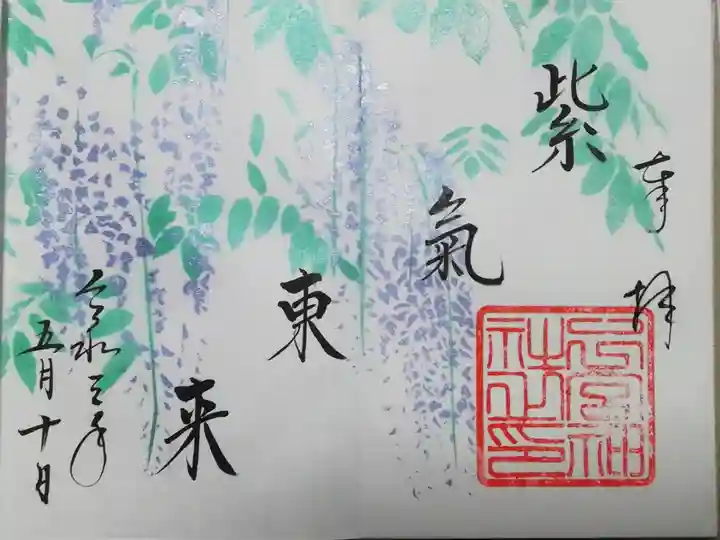 奉拝
紫氣東来
令和三年
五月十日